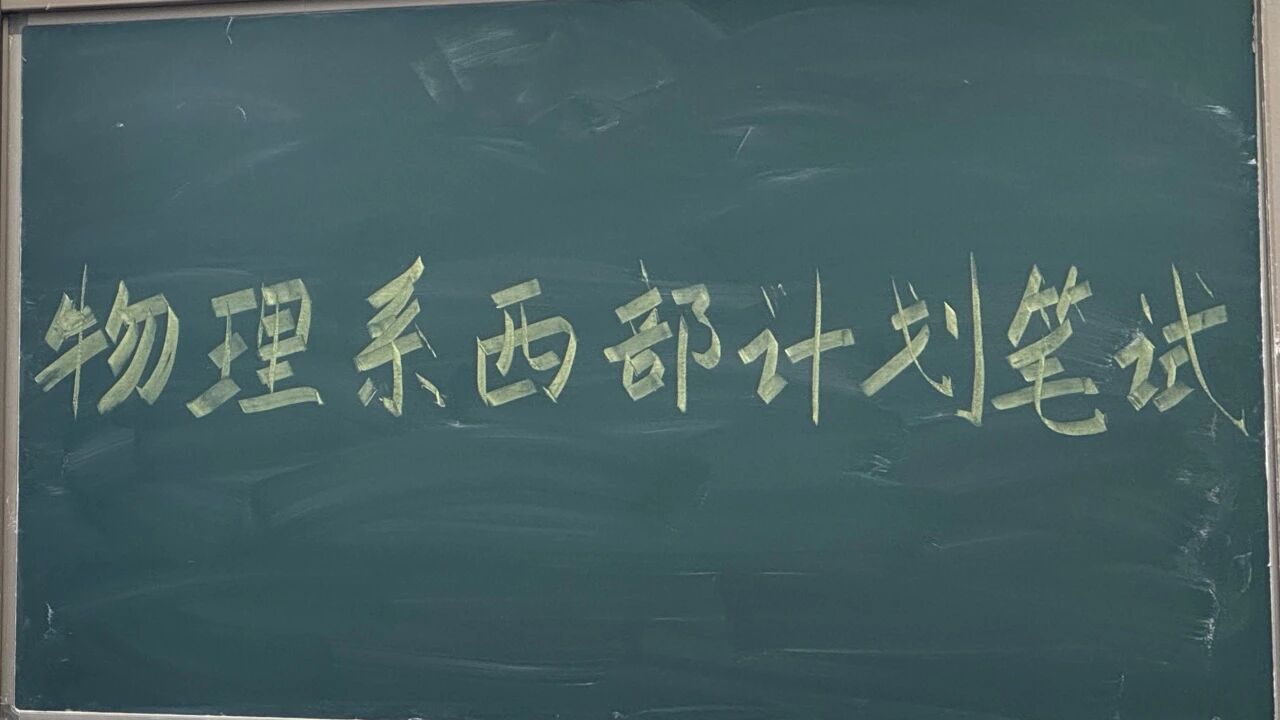 物理系西部计划笔试